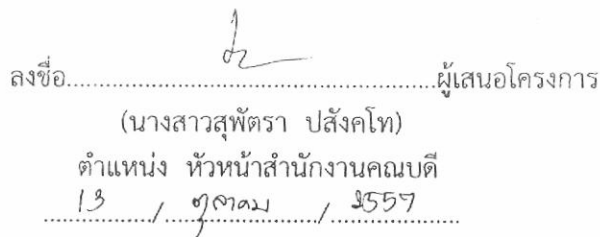 ลงชื่อ..................................................ผู้เสนอโครงการ
(นางสาวสุพัตรา ปสังคโท)
ตำแหน่ง หัวหน้าสำนักงานคณบดี
13 / ตุลาคม / 2557